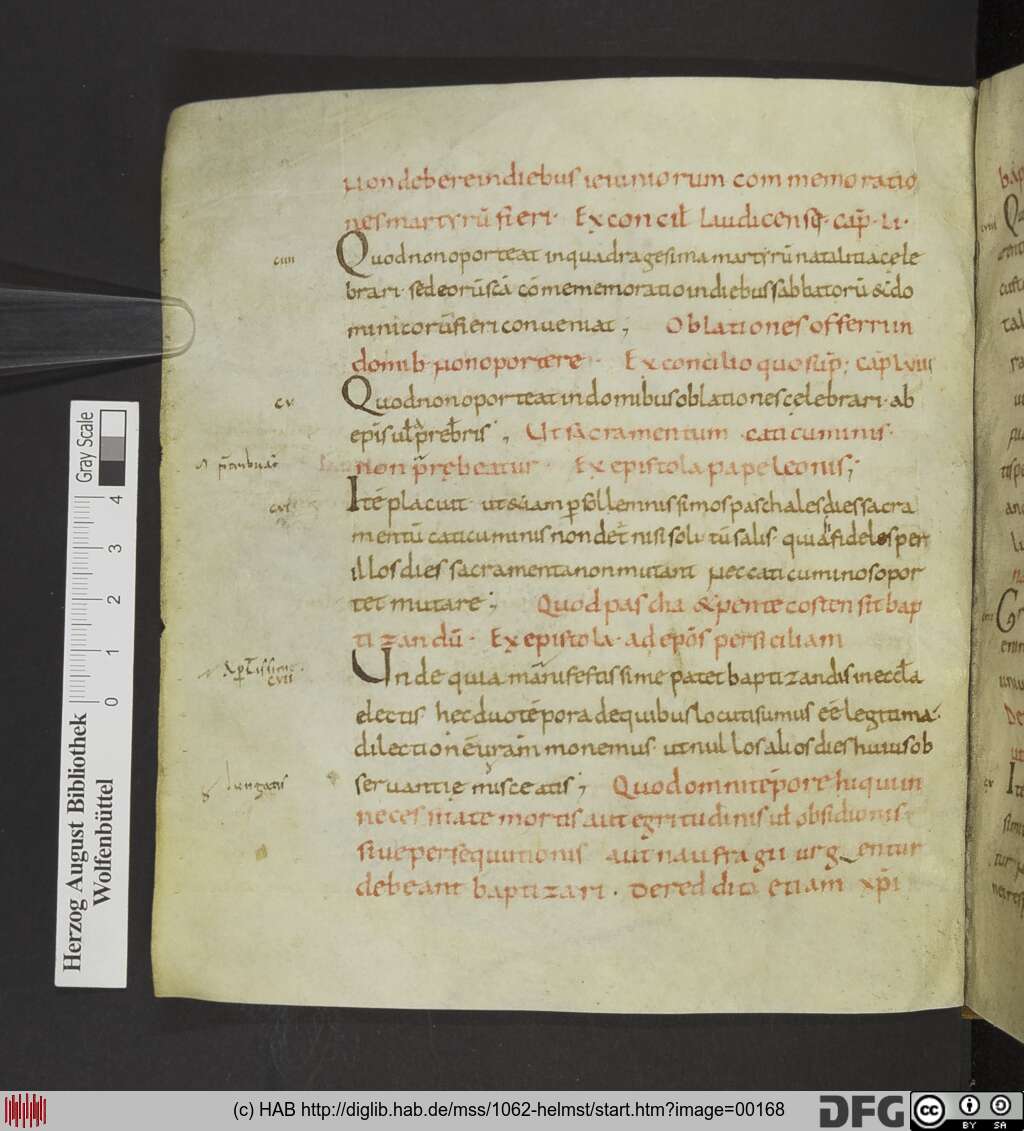 non debere in diebus ieiuniorum commemoratio
nes martyrū fieri · Ex concil̄ Laudicensę · cap̄ · LI ·
ciiii
Quod non oporteat in quadragesima martyrū natalitia cęle
brari · sed eorū scā cōmememoratio in diebus sabbatorū & do
minicorū fieri conueniat ; Oblationes offerri in
domib · non oportere · Ex concilio quo sup̄ ; cap̄ LVIII
cv
Quod non oporteat in domibus oblationes cęlebrari · ab
ep̄is ul̄ pr̄ebr̄is ; Ut sacramentum caticuminis ·
non prębeatur · Ex epistola pape leonis ;
cvi
Itē placuit · ut & iam p sollemnissimos paschales dies sacra
mentū caticuminis non det̄ nisi soli tū salis · quia si fideles per
illos dies sacramenta non mutant nec caticuminos opor
tet mutare ; Quod pascha & pentecosten sit bap
tizandū · Ex epistola · ad ep̄os per siciliam
cvii
Unde quia manifestissime patet baptizandis in eccl̄a
electis hec duo tēpora de quibus locuti sumus eē legitima ·
dilectionē uram monemus · ut nullos alios dies huius ob
seruantię misceatis ; Quod omni tēpore hi qui in
necessitate mortis aut egritudinis ul̄ obsidionis
siue persequutionis aut naufragii urg entur
debeant baptizari · De reddita etiam xp̄i
Herzog August Bibliothek
Wolfenbüttel
Gray Scale
0 1 2 3 4
(c) HAB http://diglib.hab.de/mss/1062-helmst/start.htm?image=00168
DFG
cc
BY SA